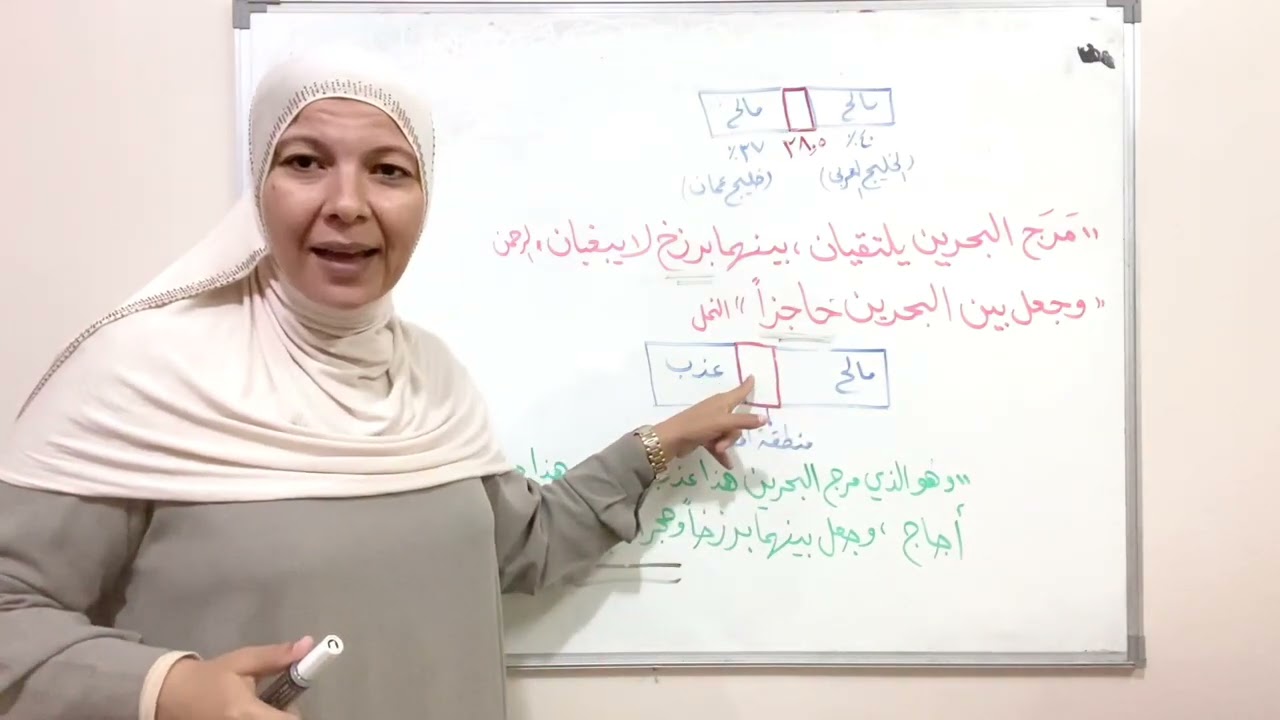 مالح مالح
٪٤٠ ٣٨,٥ ٪٣٧
(الخليج العربي) (خليج عمان)
"مَرَج البحرين يلتقيان، بينهما برزخ لا يبغيان" الرحمن
"وجعل بين البحرين حاجزاً" النمل
مالح عذب
منطقة
"وهو الذي مرج البحرين هذا عذب هذا
أجاج، وجعل بينهما برزخاً وحجر